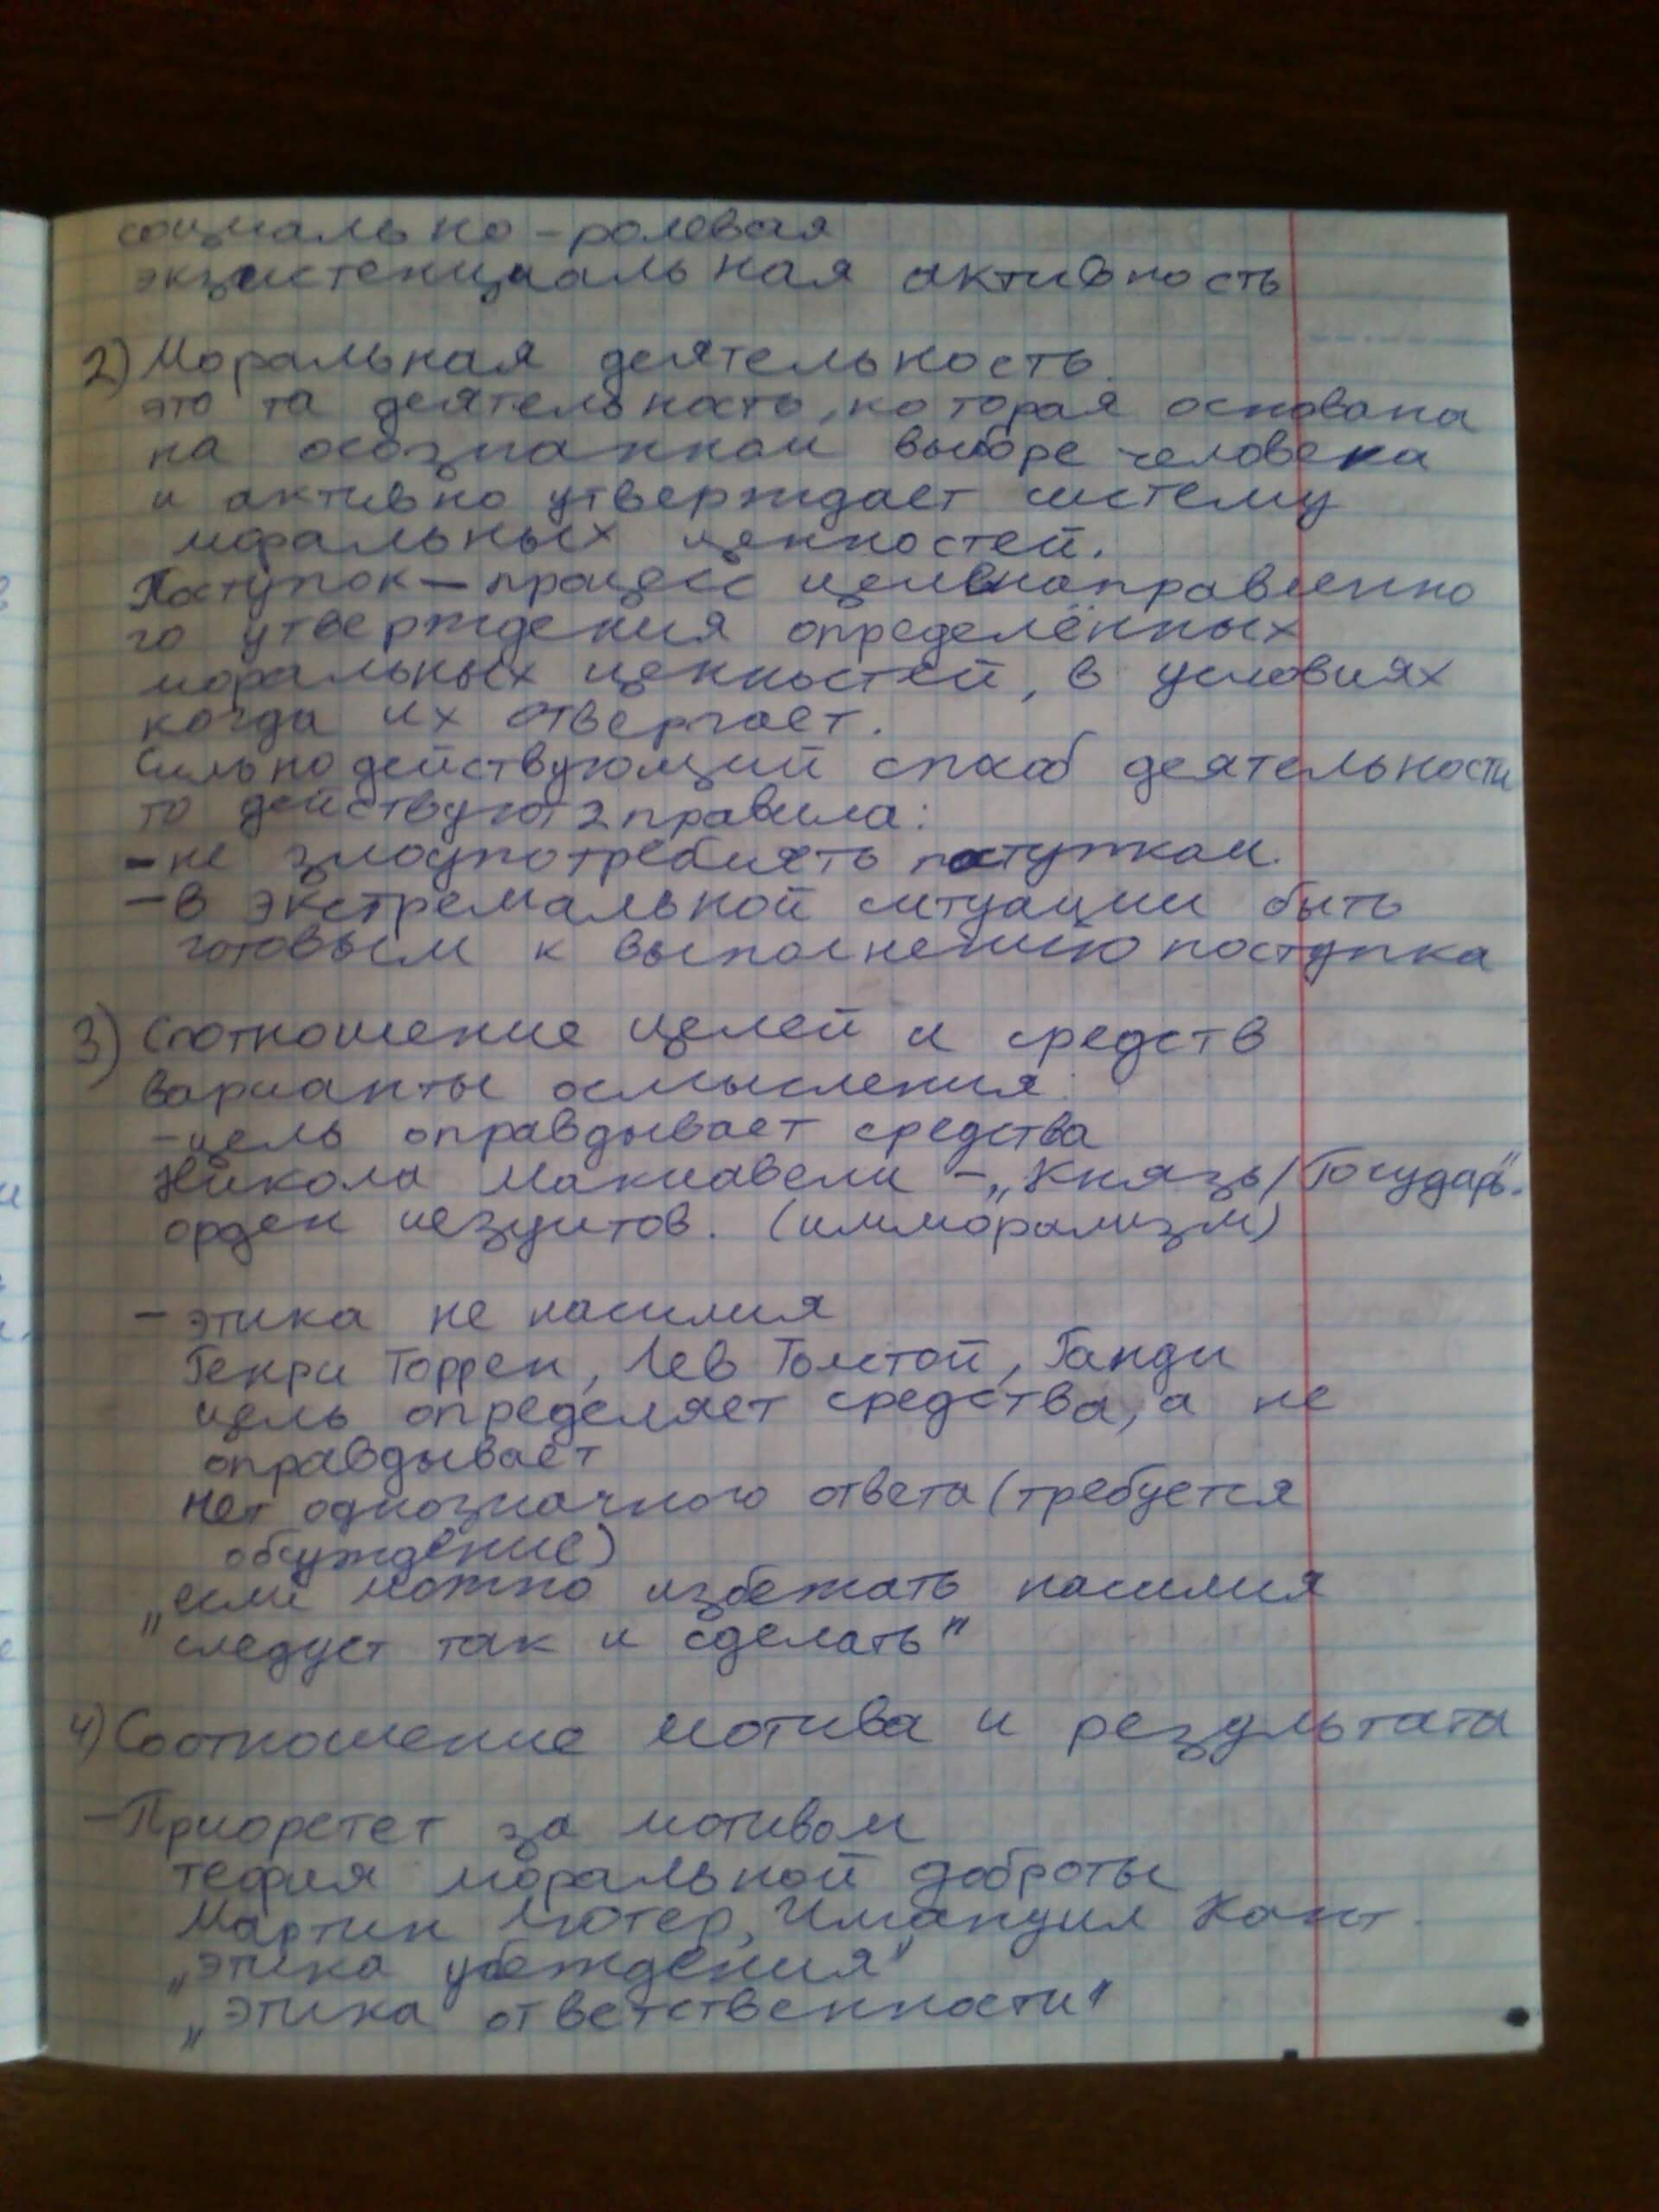 социально-ролевая
экзистенциальная активность
2) Моральная деятельность.
это та деятельность, которая основана
на осознанном выборе человека
и активно утверждает систему
моральных ценностей.
Поступок – процесс целенаправленно
го утверждения определённых
моральных ценностей, в условиях
когда их отвергает.
Сильнодействующий способ деятельности
то действуют 2 правила:
- не злоупотреблять поступком.
- в экстремальной ситуации быть
готовым к выполнению поступка
3) Соотношение целей и средств
варианты осмысления:
- цель оправдывает средства
Никола Макиавели - „Князь/Государь".
орден иезуитов. (имморализм)
- этика не насилия
Генри Торрен, Лев Толстой, Ганди
цель определяет средства, а не
оправдывает
нет однозначного ответа (требуется
обсуждение)
„если можно избежать насилия
следует так и сделать"
4) Соотношение мотива и результата
- Приоретет за мотивом
теория моральной доброты
Мартин Лютер, Имануил Кант.
„этика убеждения"
„этика ответственности"